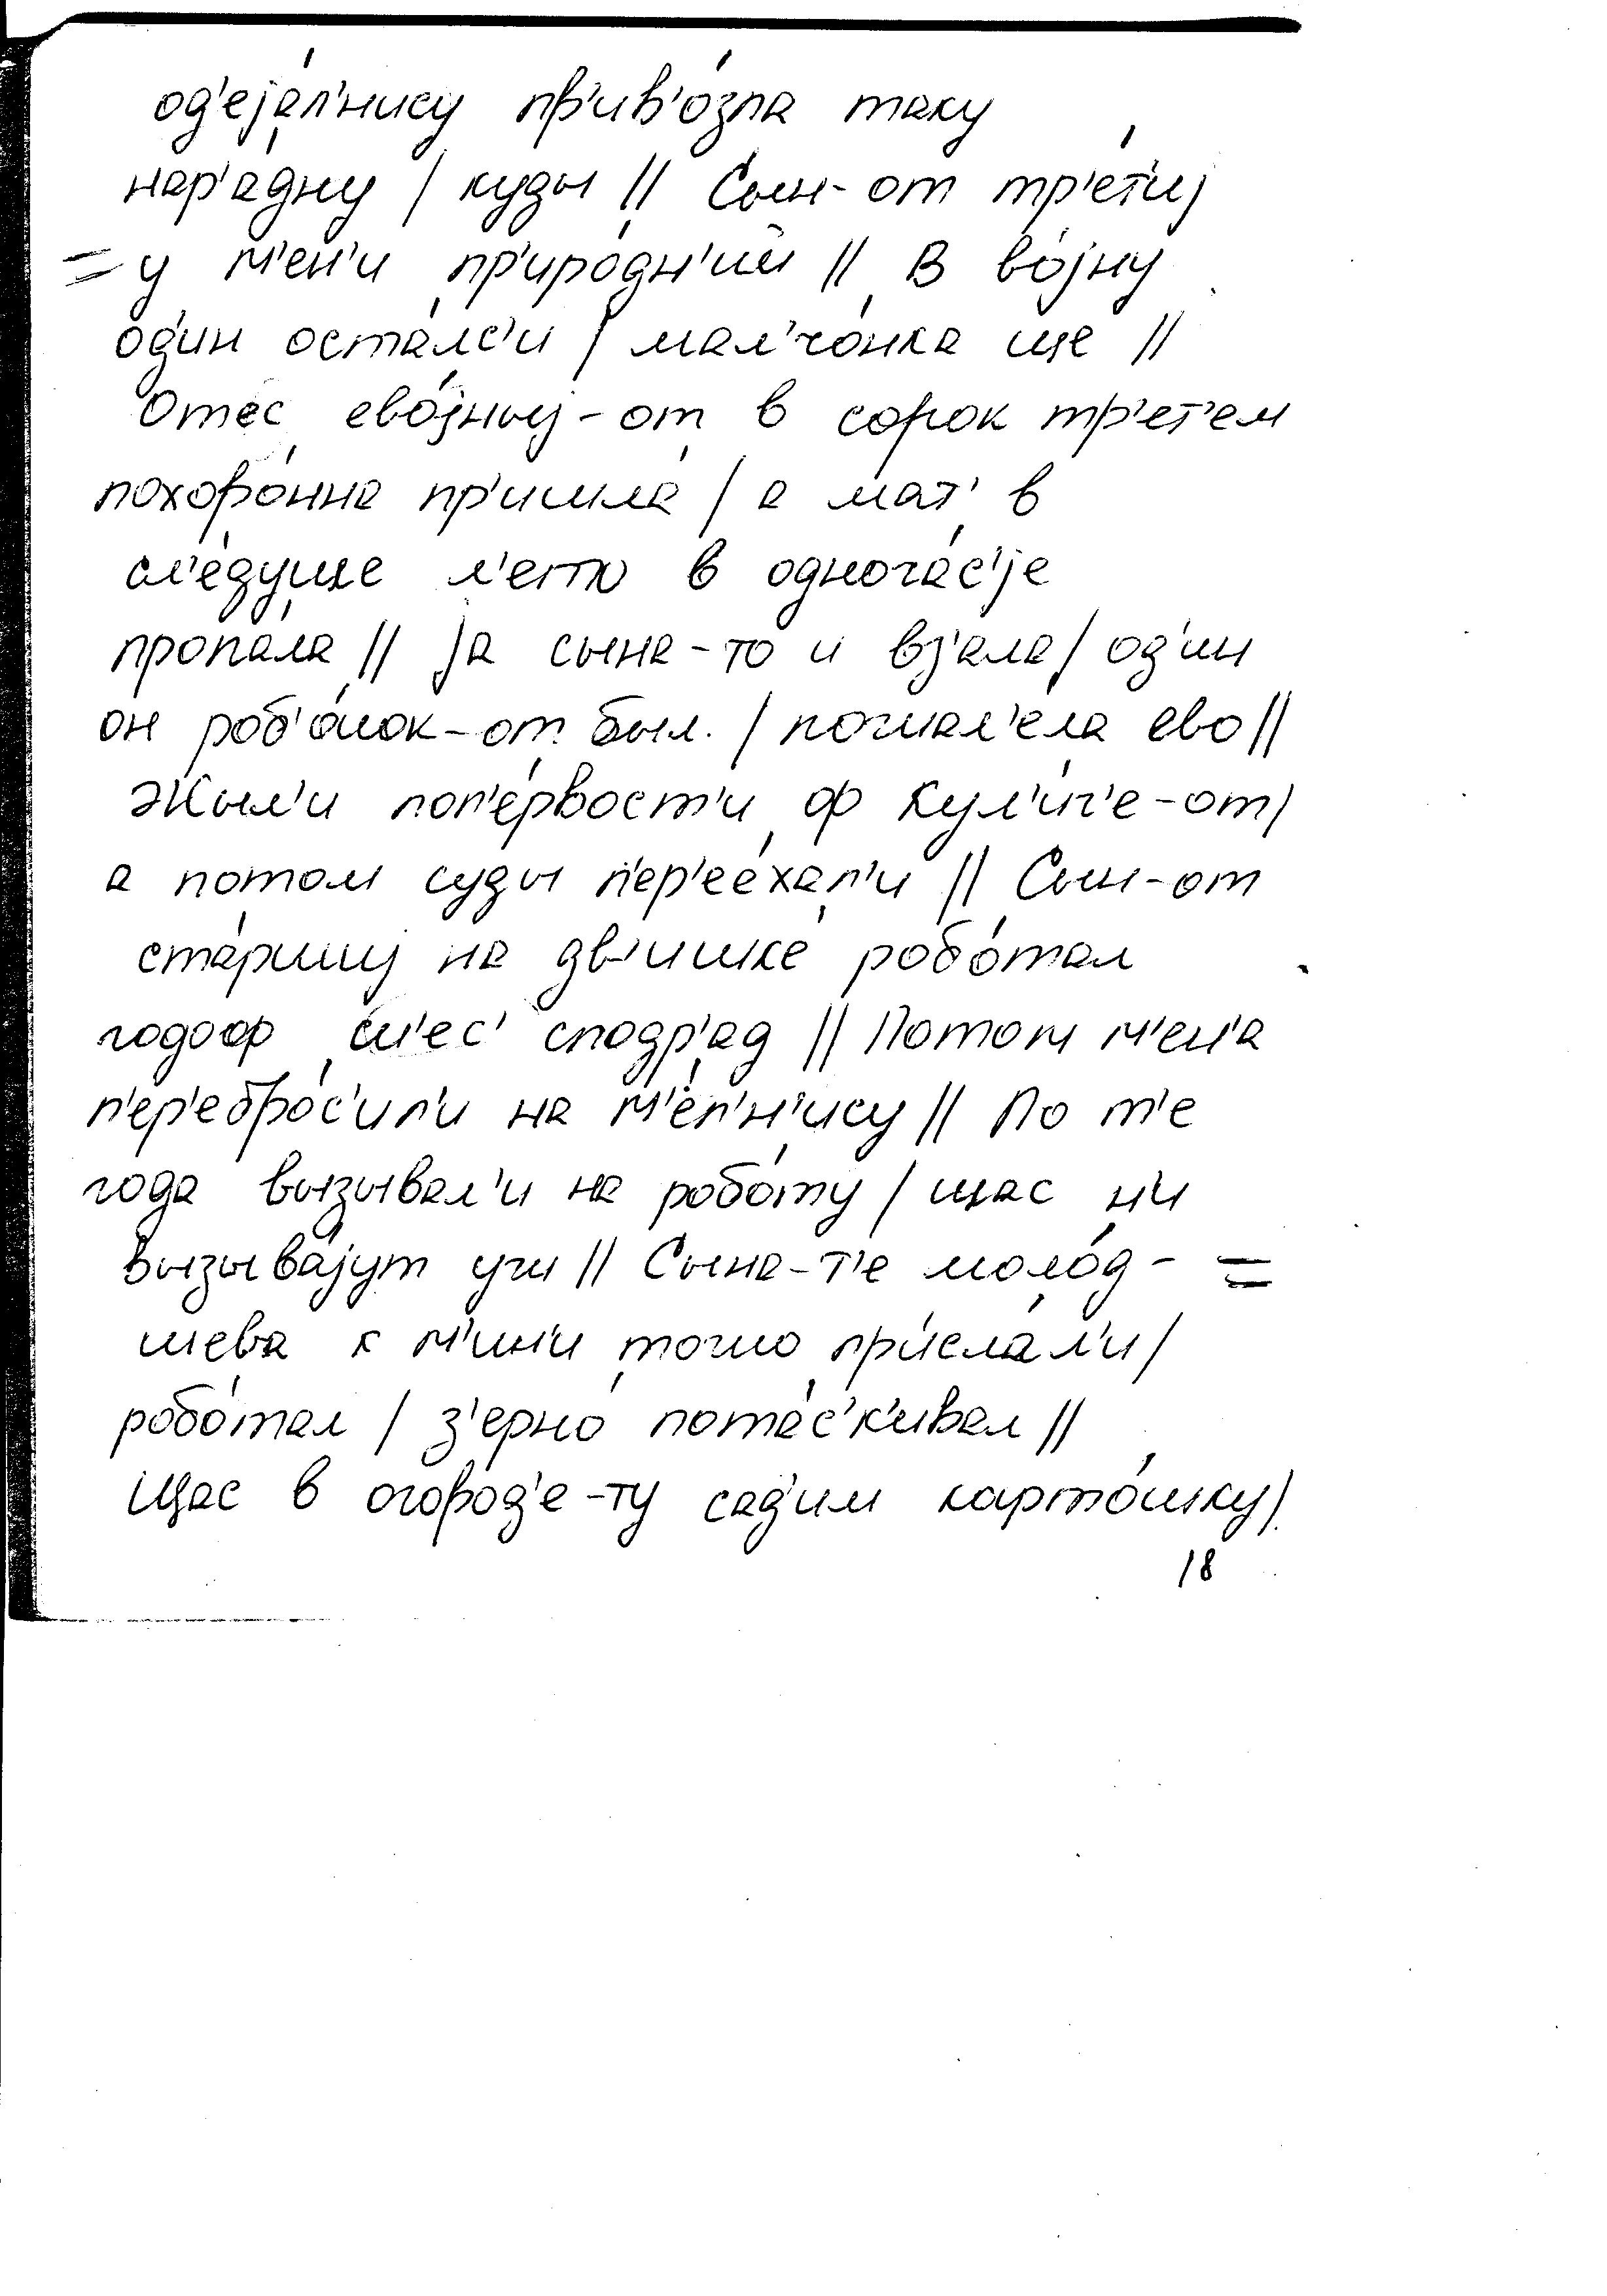 од'еја́л'нису пр'ив'о́зла таку
нар'а́дну / куды // Сын-от тр'е́т'иј
= у м'ен'и пр'иро́дн'ий // В во́јну
од'ин оста́лс'и / мал'чо́нка ще //
Оте́с ево́јныј-от в сорок тр'ет'ем
похоро́нна пр'ишла́ / а мат' в
сл'е́дуще л'ето в одноча́с'је
пропа́ла // Ја сына-то и вј'ала / од'ин
он роб'о́нок-от был. / пожал'е́ла ево //
Жыл'и поп'е́рвост'и ф Кул'и́г'е-от /
а потом суды п'ер'ее́хал'и // Сын-от
ста́ршыј на дв'ишке́ робо́тал
годоф ш'ес' сподр'ад // Потом м'ен'а
п'ер'ебро́с'ил'и на м'е́л'н'ису // По т'е
года вызывал'и на робо́ту / щас н'и
вызыва́јут уж // Сына-т'е моло́д-=
шева к м'ин'и тожо присла́л'и /
робо́тал / з'ерно́ пота́с'к'ивал //
Щас в огород'е-ту сад'им карто́шку /
18